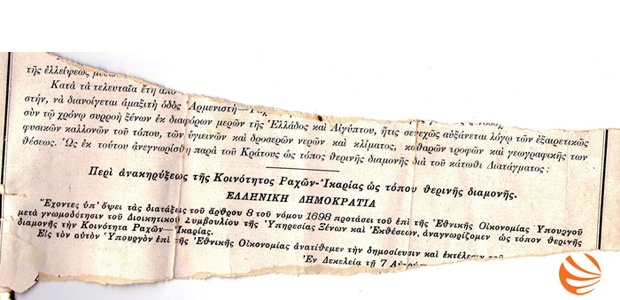 τῆς ἐλλείψεως
Κατὰ τὰ τελευταῖα ἔτη
στήν, νὰ διανοίγεται ἁμαξιτὴ ὁδὸς Ἀρμενιστὴ—
σὺν τῷ χρόνῳ συρροὴ ξένων ἐκ διαφόρων μερῶν τῆς Ἑλλάδος καὶ Αἰγύπτου, ἥτις συνεχῶς αὐξάνεται λόγῳ τῶν ἐξαιρετικῶς
φυσικῶν καλλονῶν τοῦ τόπου, τῶν ὑγιεινῶν καὶ δροσερῶν νερῶν καὶ κλίματος, καθαρῶν τροφῶν καὶ γεωγραφικῆς των
θέσεως. Ὡς ἐκ τούτου ἀνεγνωρίσθη παρὰ τοῦ Κράτους ὡς τόπος θερινῆς διαμονῆς διὰ τοῦ κάτωθι Διατάγματος:
Περὶ ἀνακηρύξεως τῆς Κοινότητος Ραχῶν-Ἰκαρίας ὡς τόπου θερινῆς διαμονῆς.
ΕΛΛΗΝΙΚΗ ΔΗΜΟΚΡΑΤΙΑ
Ἔχοντες ὑπ' ὄψει τὰς διατάξεις τοῦ ἄρθρου 8 τοῦ νόμου 1698 προτάσει τοῦ ἐπὶ τῆς Ἐθνικῆς Οἰκονομίας Ὑπουργοῦ
μετὰ γνωμοδότησιν τοῦ Διοικητικοῦ Συμβουλίου τῆς Ὑπηρεσίας Ξένων καὶ Ἐκθέσεων, ἀναγνωρίζομεν ὡς τόπον θερινῆς
διαμονῆς τὴν Κοινότητα Ραχῶν—Ἰκαρίας.
Εἰς τὸν αὐτὸν Ὑπουργὸν ἐπὶ τῆς Ἐθνικῆς Οἰκονομίας ἀνατίθεμεν τὴν δημοσίευσιν καὶ ἐκτέλεσιν
Ἐν Δεκελείᾳ τῇ 7